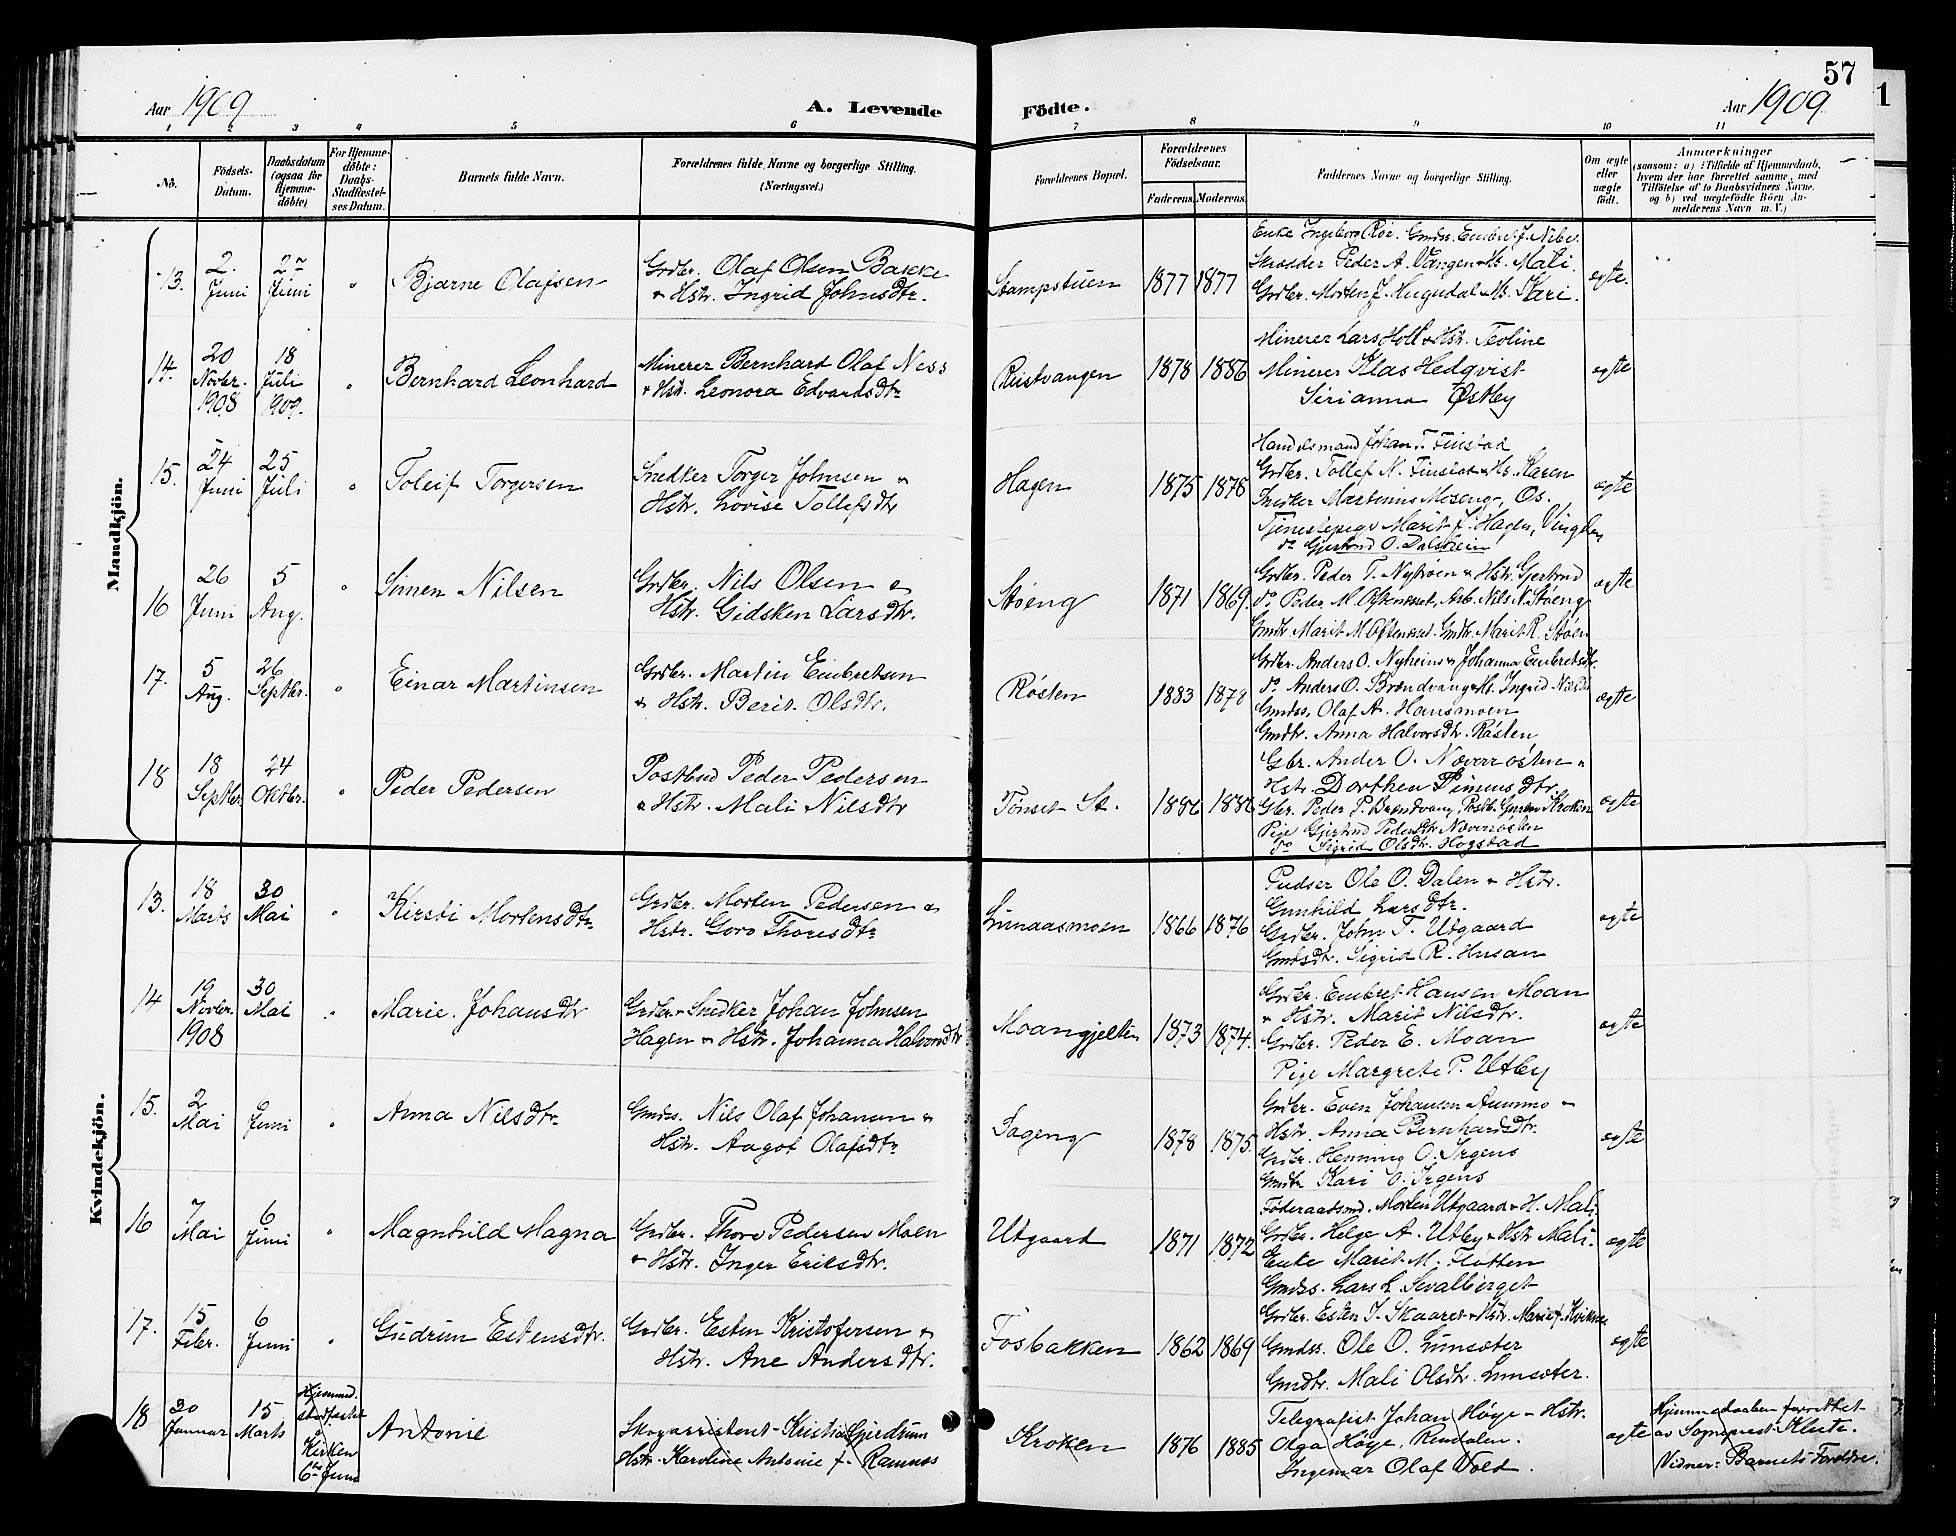 57
Aar 1909
A. Levende
Födte.
Aar 1909
1
1 2 3 4 5 6 7 8 9 10 11
No.
Födsels-
Datum.
Daabsdatum
(ogsaa for
Hjemme-
döbte)
For Hjemme-
döbte:
Daabs-
Stadfæstel-
ses Datum.
Barnets fulde Navn.
Forældrenes fulde Navne og borgerlige Stilling.
(Næringsvei.)
Forældrenes Bopæl.
Forældrenes
Födselsaar.
Faderens.
Moderens.
Faddernes Navne og borgerlige Stilling.
Om ægte
eller
uægte
født.
Anmærkninger
(saasom: a) i Tilfælde af Hjemmedaab,
hvem der har forrettet samme, med
Tilföielse af to Daabsvidners Navne.
og b) ved uægtefödte Börn An-
melderens Navn m. V.)
Mandkjön.
13.
2.
Juni
Juni
Bjarne Olafsen
Grdbr. Olaf Olsen Bakke
& Hstr. Ingrid Johnsdtr.
Stampstuen
1877
1877
Enke Ingeborg Røe. Gmdss. Embret J.
Skrædder Peder A. Vangen & Hs. Mali.
Grdbr. Morten J. & Hs. Kari.
ægte.
14.
20
Novbr.
1908
18
Juli
1909.
Bernhard Leonhard
Minerer Bernhard Olaf Ness
& Hstr. Leonora Edvardsdtr
Rustvangen
1878
1886
Minerer Lars Holl & Hstr. Teoline
Minerer Klas Hedqvist
Sirianna Østby
ægte
15.
24
Juni
25
Juli
Toleif Torgersen
Snedker Torger Johnsen &
Hstr. Lovise Tollefsdtr
Hagen
1875
1878
Handelsmand Johan T. Finstad
Grdbr. Tollef N. Finstad & Hs. Karen
Snedker Martinus Moseng, Os.
Tjenestepige Marit J. Hagen,
do Gjertrud O. Dalsheim
ægte
16
26
Juni
5
Aug.
Simen Nilsen
Grdbr. Nils Olsen &
Hstr. Gidsken Larsdtr.
Støeng
1871
1869.
Grdbr. Peder T. Nytrøen & Hstr. Gjertrud
do. Peder M. Aftenæset, Arb. Nils N. Støeng
Gmdtr. Marit M. Aftenæset. Gmdtr. Marit R. Støen
ægte
17.
5
Aug.
26
Septbr.
Einar Martinsen
Grdbr. Martin Embretsen
& Hstr. Berit Olsdtr.
Røsten
1883
1878
Grdbr. Anders O. Nyheim & Johanna Embretsdtr.
do. Anders O. Brændvang & Hs. Ingrid
Gmdss. Olaf A. Hansmoen
Gmdtr. Anna Halvorsdtr. Røsten
ægte
18
18
Septbr.
24
Oktbr.
Peder Pedersen
Postbud Peder Pedersen
& Hstr. Mali Nilsdtr
Tønset St.
1886
1886
Gbr. Anders O. Næverøsten &
Hstr. Dorthea Simensdtr.
Gbr. Peder P. Brændvang, Postb. Kroken
Pige Gjertrud Pedersdtr Næverøsten
do Sigrid Olsdtr. Hogstad
ægte
Kvindekjön.
13.
18
Marts
30
Mai
Kirsti Mortensdtr
Grdbr. Morten Pedersen &
Hstr. Goro Thoresdtr
Lunaasmoen
1866
1876
Pudser Ole O. Dalen & Hstr.
Gunhild Larsdtr.
Grdbr. John T. Utgaard
Gmdsdtr. Sigrid R. Husan
ægte
14
19
Novbr.
1908
30
Mai
Marie Johansdtr
Grdbr. & Snedker Johan Johnsen
Hagen & Hstr. Johanna Halvorsdtr
Moangjelten
1873
1874.
Grdbr. Embret Hansen Moan
& Hstr. Marit Nilsdtr.
Grdbr. Peder E. Moan
Pige Margrete P. Utby
ægte
15.
2
Mai
6
Juni
Anna Nilsdtr
Gmdss. Nils Olaf Johansen &
Hstr. Aagot Olafsdtr
Sageng
1878
1875.
Grdbr. Even Johansen Aummo &
Hstr. Anna Bernhardsdtr.
Grdbr. Henning O. Irgens
Gmdtr Kari O. Irgens
ægte
16
7
Mai
6
Juni
Magnhild Magna
Grdbr. Thore Pedersen Moen
& Hstr. Inger Eriksdtr.
Utgaard
1871
1872
Føderaadsmd. Morten Utgaard & H. Mali.
Grdbr. Helge A. Utby & Hstr Mali.
Enke Marit M. Fløtten
Gmdss. Lars L. Sevalberget
ægte
17.
15
Febr.
6
Juni
Gudrun Estensdtr.
Grdbr. Esten Kristofersen &
Hstr. Ane Andersdtr.
Fosbakken
1862
1869
Grdbr. Esten J. Skaaret & Hstr. Marie f. Kvikne
Gmdss. Ole O. Lunsæter
Gmdtr. Mali Olsdtr. Lunsæter.
ægte
18
20
Januar
15
Marts
Hjemmed.
stadfæstet
i
Kirken
6te Juni
Antonie
Skogassistent Kristian Gjerdrum
Hstr. Karoline Antonie f. Ramnes
Kroken
1876
1885
Telegrafist Johan Høye & Hstr.
Olga Høye, Rendalen.
Ingemar Olaf Vold.
ægte
Hjemmedaaben forrettet
av Sogneprest Klüte.
Vidner: Barnets Forældre.